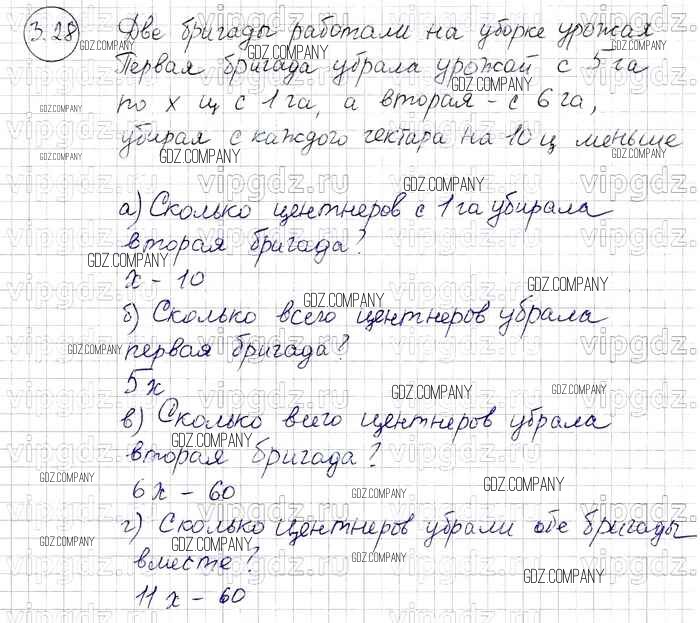 3.28 Две бригады работали на уборке урожая
Первая бригада убрала урожай с 5 га
по х ц с 1 га, а вторая - с 6 га,
убирая с каждого гектара на 10 ц меньше
а) Сколько центнеров с 1 га убирала
вторая бригада?
х - 10
б) Сколько всего центнеров убрала
первая бригада?
5х
в) Сколько всего центнеров убрала
вторая бригада?
6х - 60
г) Сколько центнеров убрали обе бригады
вместе?
11х - 60